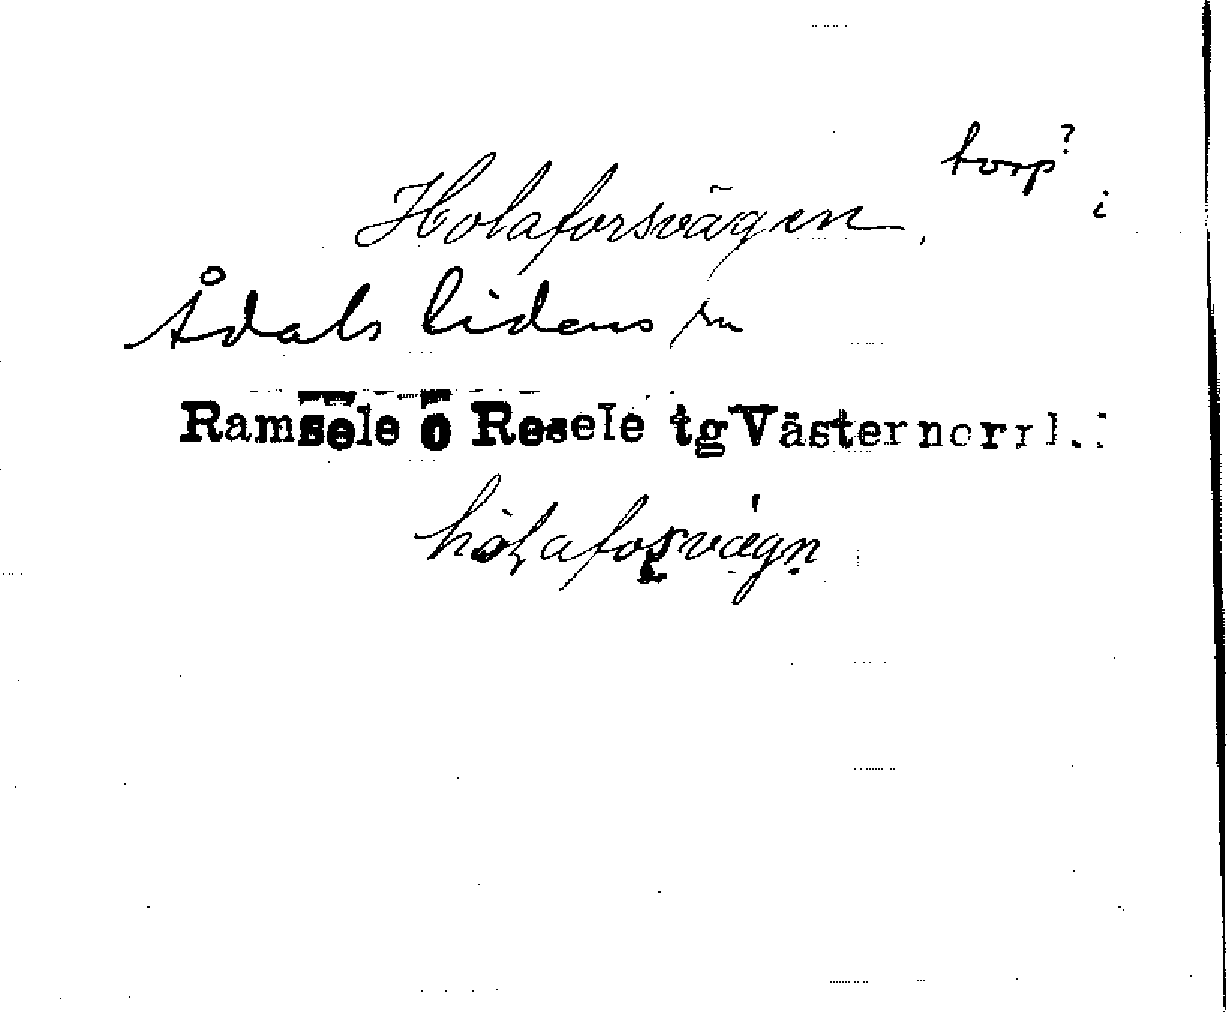 torp? i
Holaforsvägen,
Ådals lidens sn
Ramsele o Resele tg Västernorrl.
hòlaforsvágn